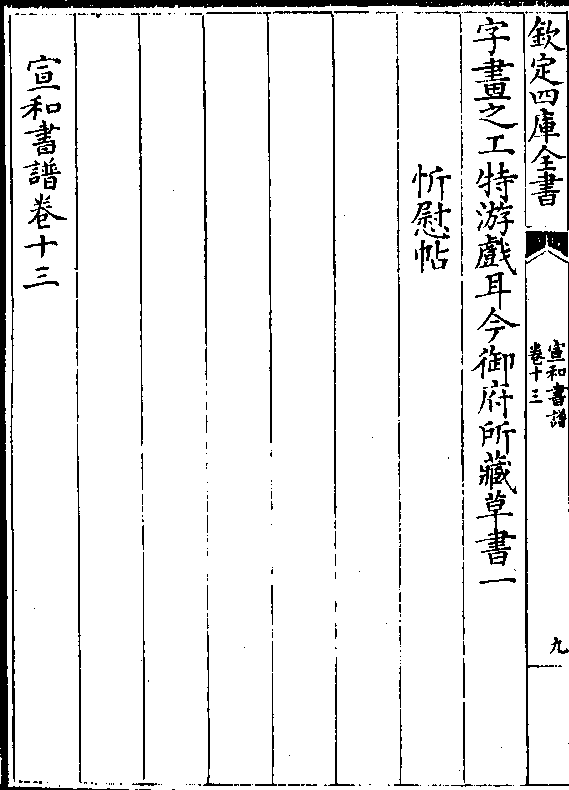 欽定四庫全書
宣和書譜
卷十三
九
字畫之工特游戲耳今御府所藏草書一
忻慰帖
宣和書譜卷十三